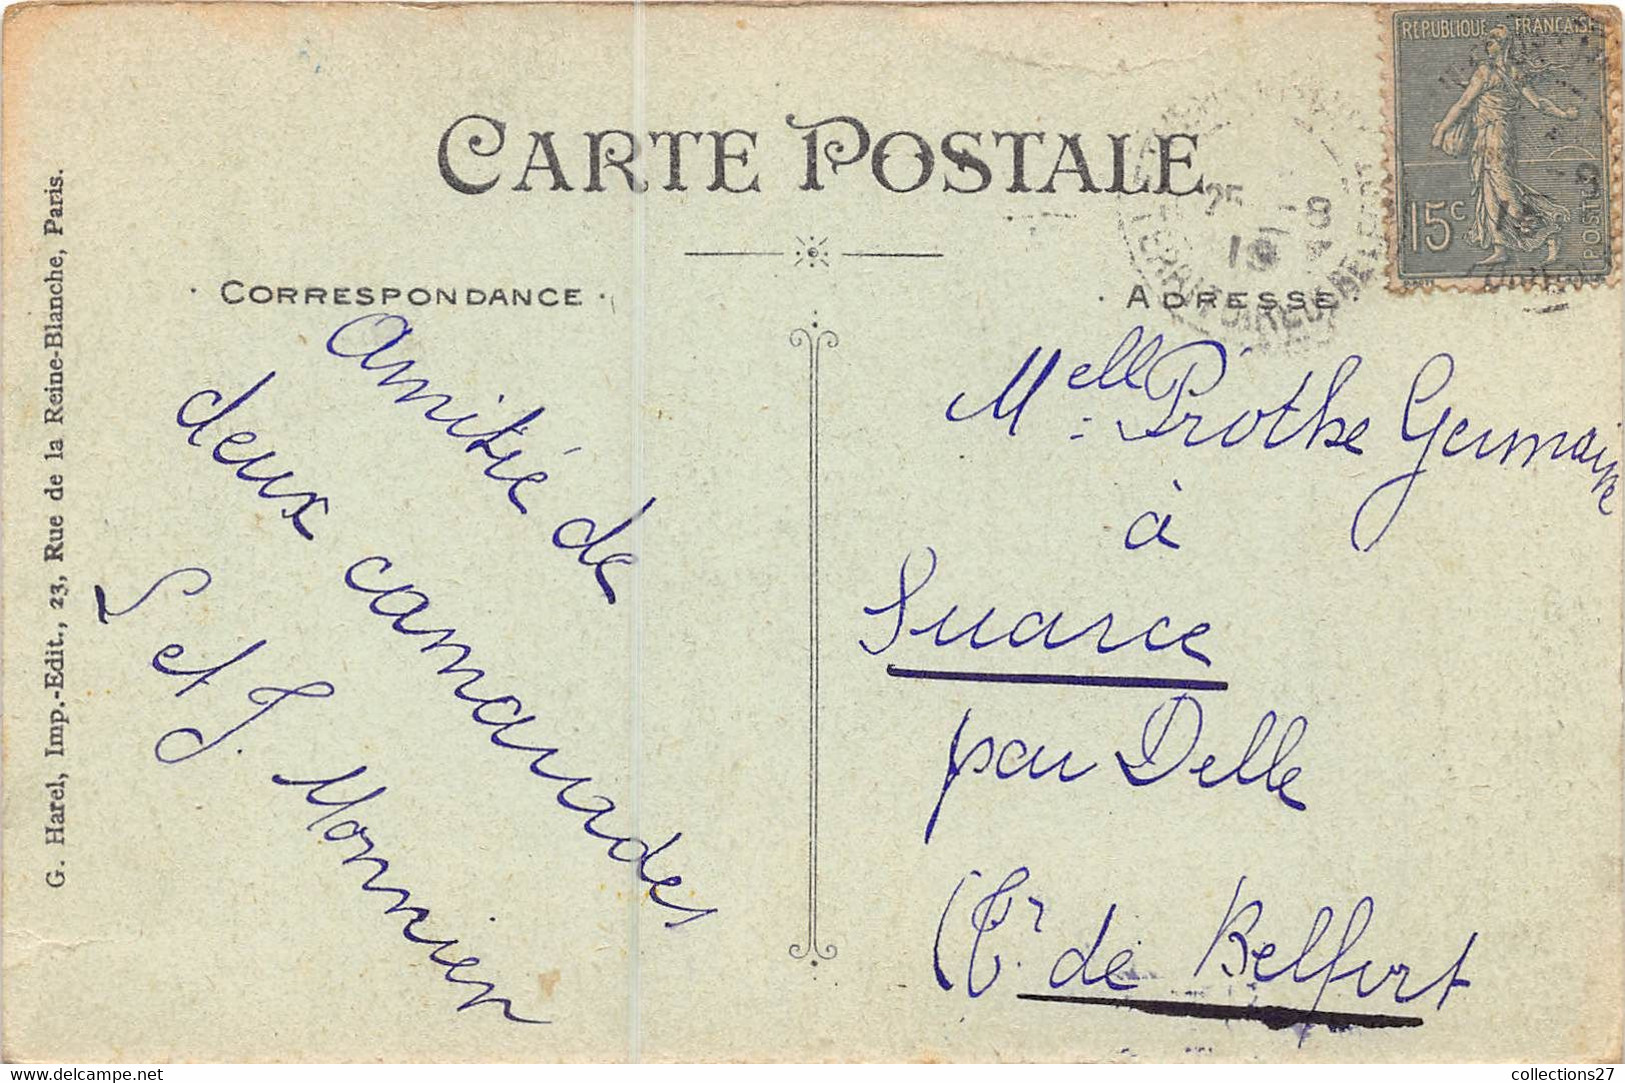 CARTE POSTALE
· CORRESPONDANCE ·
Amitié de
deux camarades
S et J. Monnier
G. Harel, Imp.-Edit., 23, Rue de la Reine-Blanche, Paris.
· ADRESSE
Melle Prothe Germaine
à
Suarce
par Delle
(Tr. de Belfort
REPUBLIQUE FRANÇAISE
15c
POSTES
25 -8
19
collections27